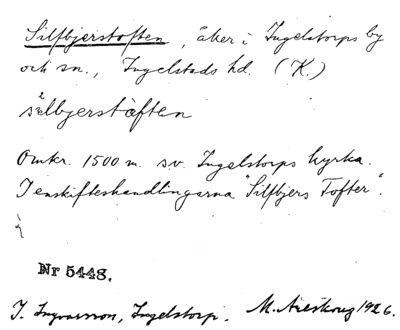 Silfbjerstoften, åker i Ingelstorps by
och sn., Ingelstads hd. (K.)
sélbjerstàften
Omkr. 1500 m. sv. Ingelstorps kyrka.
I enskifteshandlingarna "Silfbjers Tofter".
Nr 5448.
I. Ingvarsson, Ingelstorp. M. Areskoug 1926.